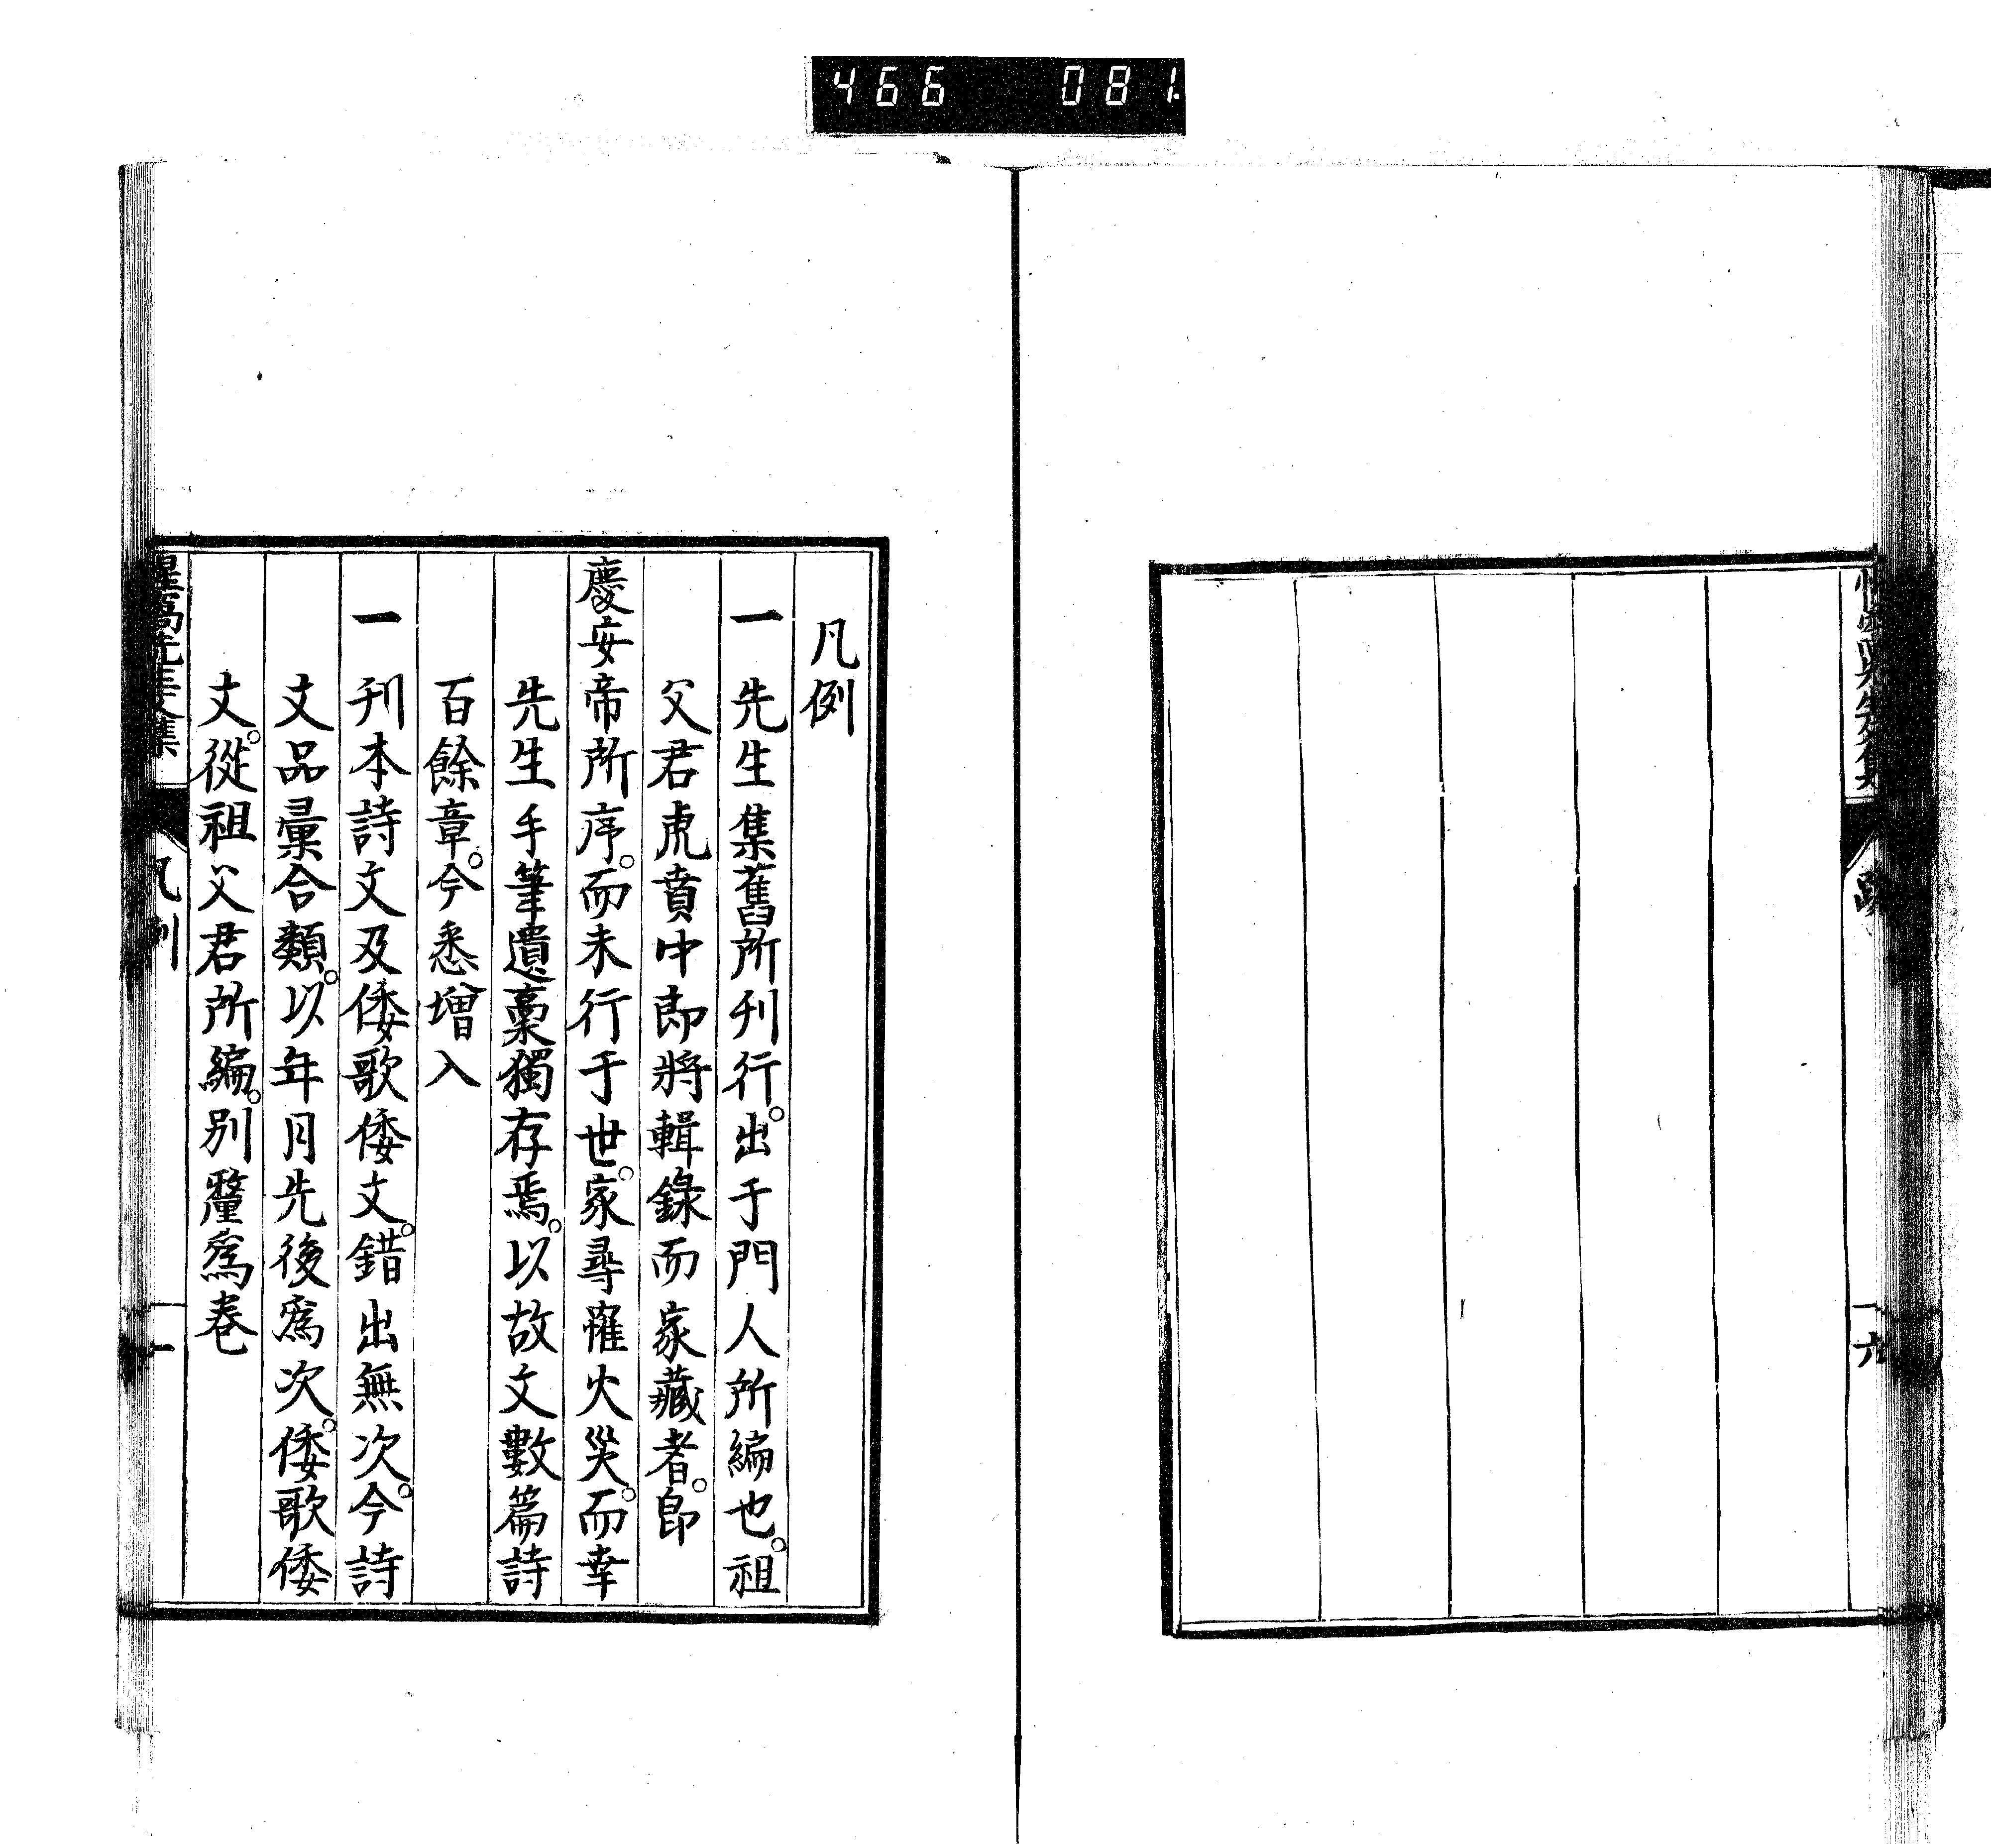 466 081.
一六
凡例
一先生集舊所刊行。出于門人所編也。祖
父君虎賁中郎將輯錄而家藏者。即
慶安帝所序。而未行于世。家尋罹火災。而幸
先生手筆遺稾獨存焉。以故文數篇詩
百餘章。今悉增入
一刊本詩文及倭歌倭文。錯出無次。今詩
文品彙合類。以年月先後爲次。倭歌倭
文。從祖父君所編。別釐爲卷
凡例
一